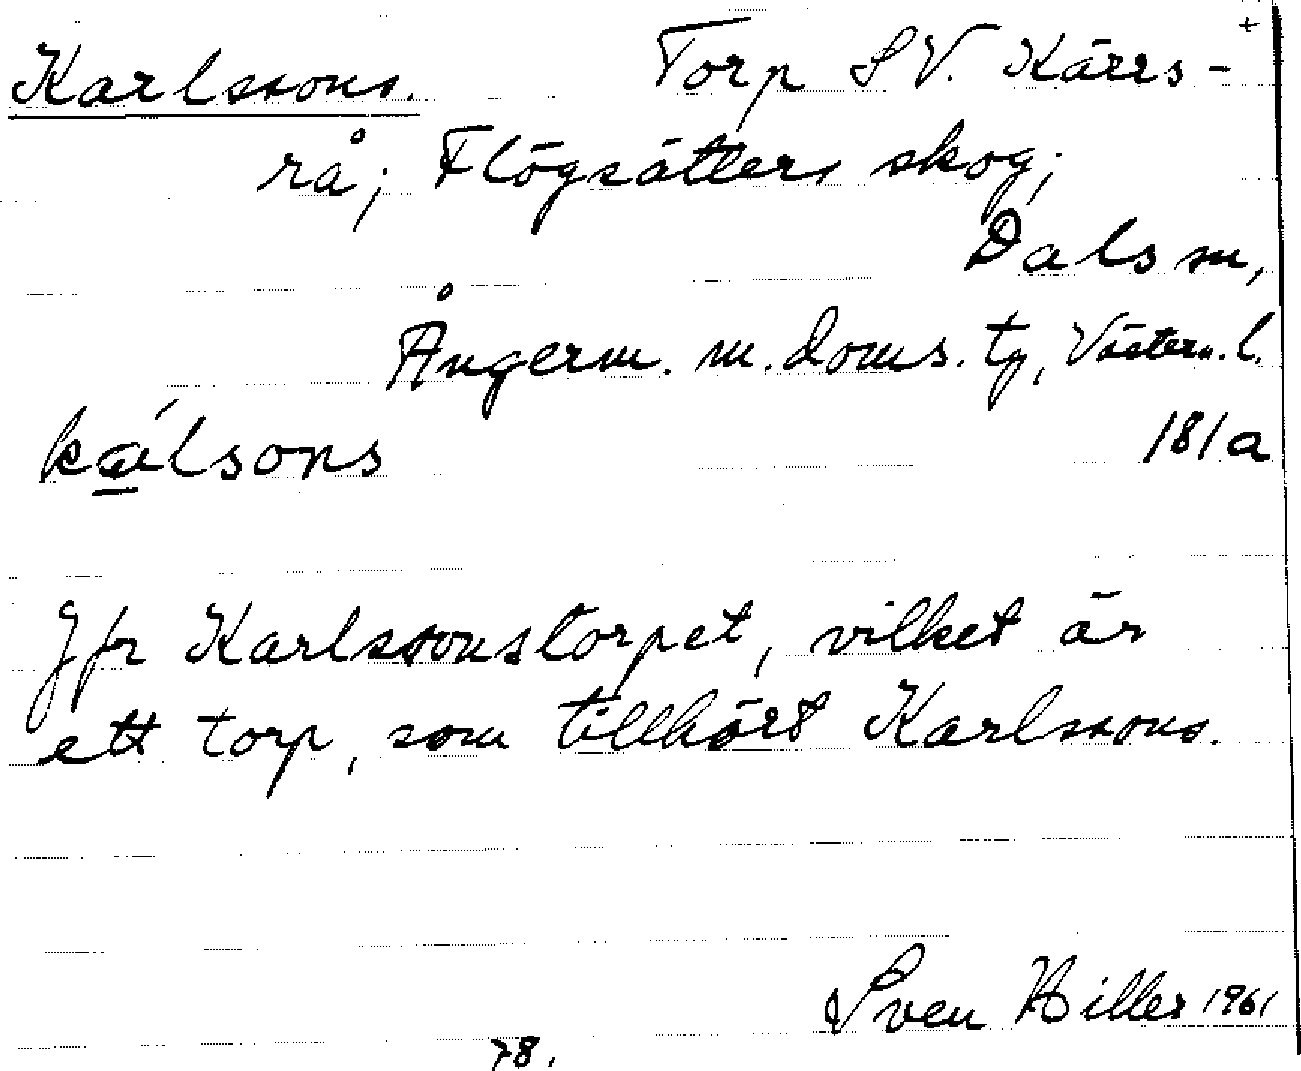 +
Karlssons. Torp SV. Kärrs-
rå; Flögsätters skog;
Dals sn,
Ångerm. m. doms. tg, Västern. l.
kálsons 181a
Jfr Karlssonstorpet, vilket är
ett torp, som tillhört Karlssons.
Sven Hiller 1961
78.